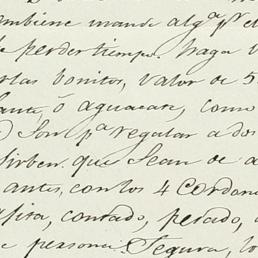 ombiene mande algª pr el
de perder tiempo. haga
las bonitos, valor de 5
ante, ó aguacate, como
Son pª regular a dos
Sirben. que Sean de a
antes, con los 4 Cordon
afira, contado, pesado,
e persona Segura, lo